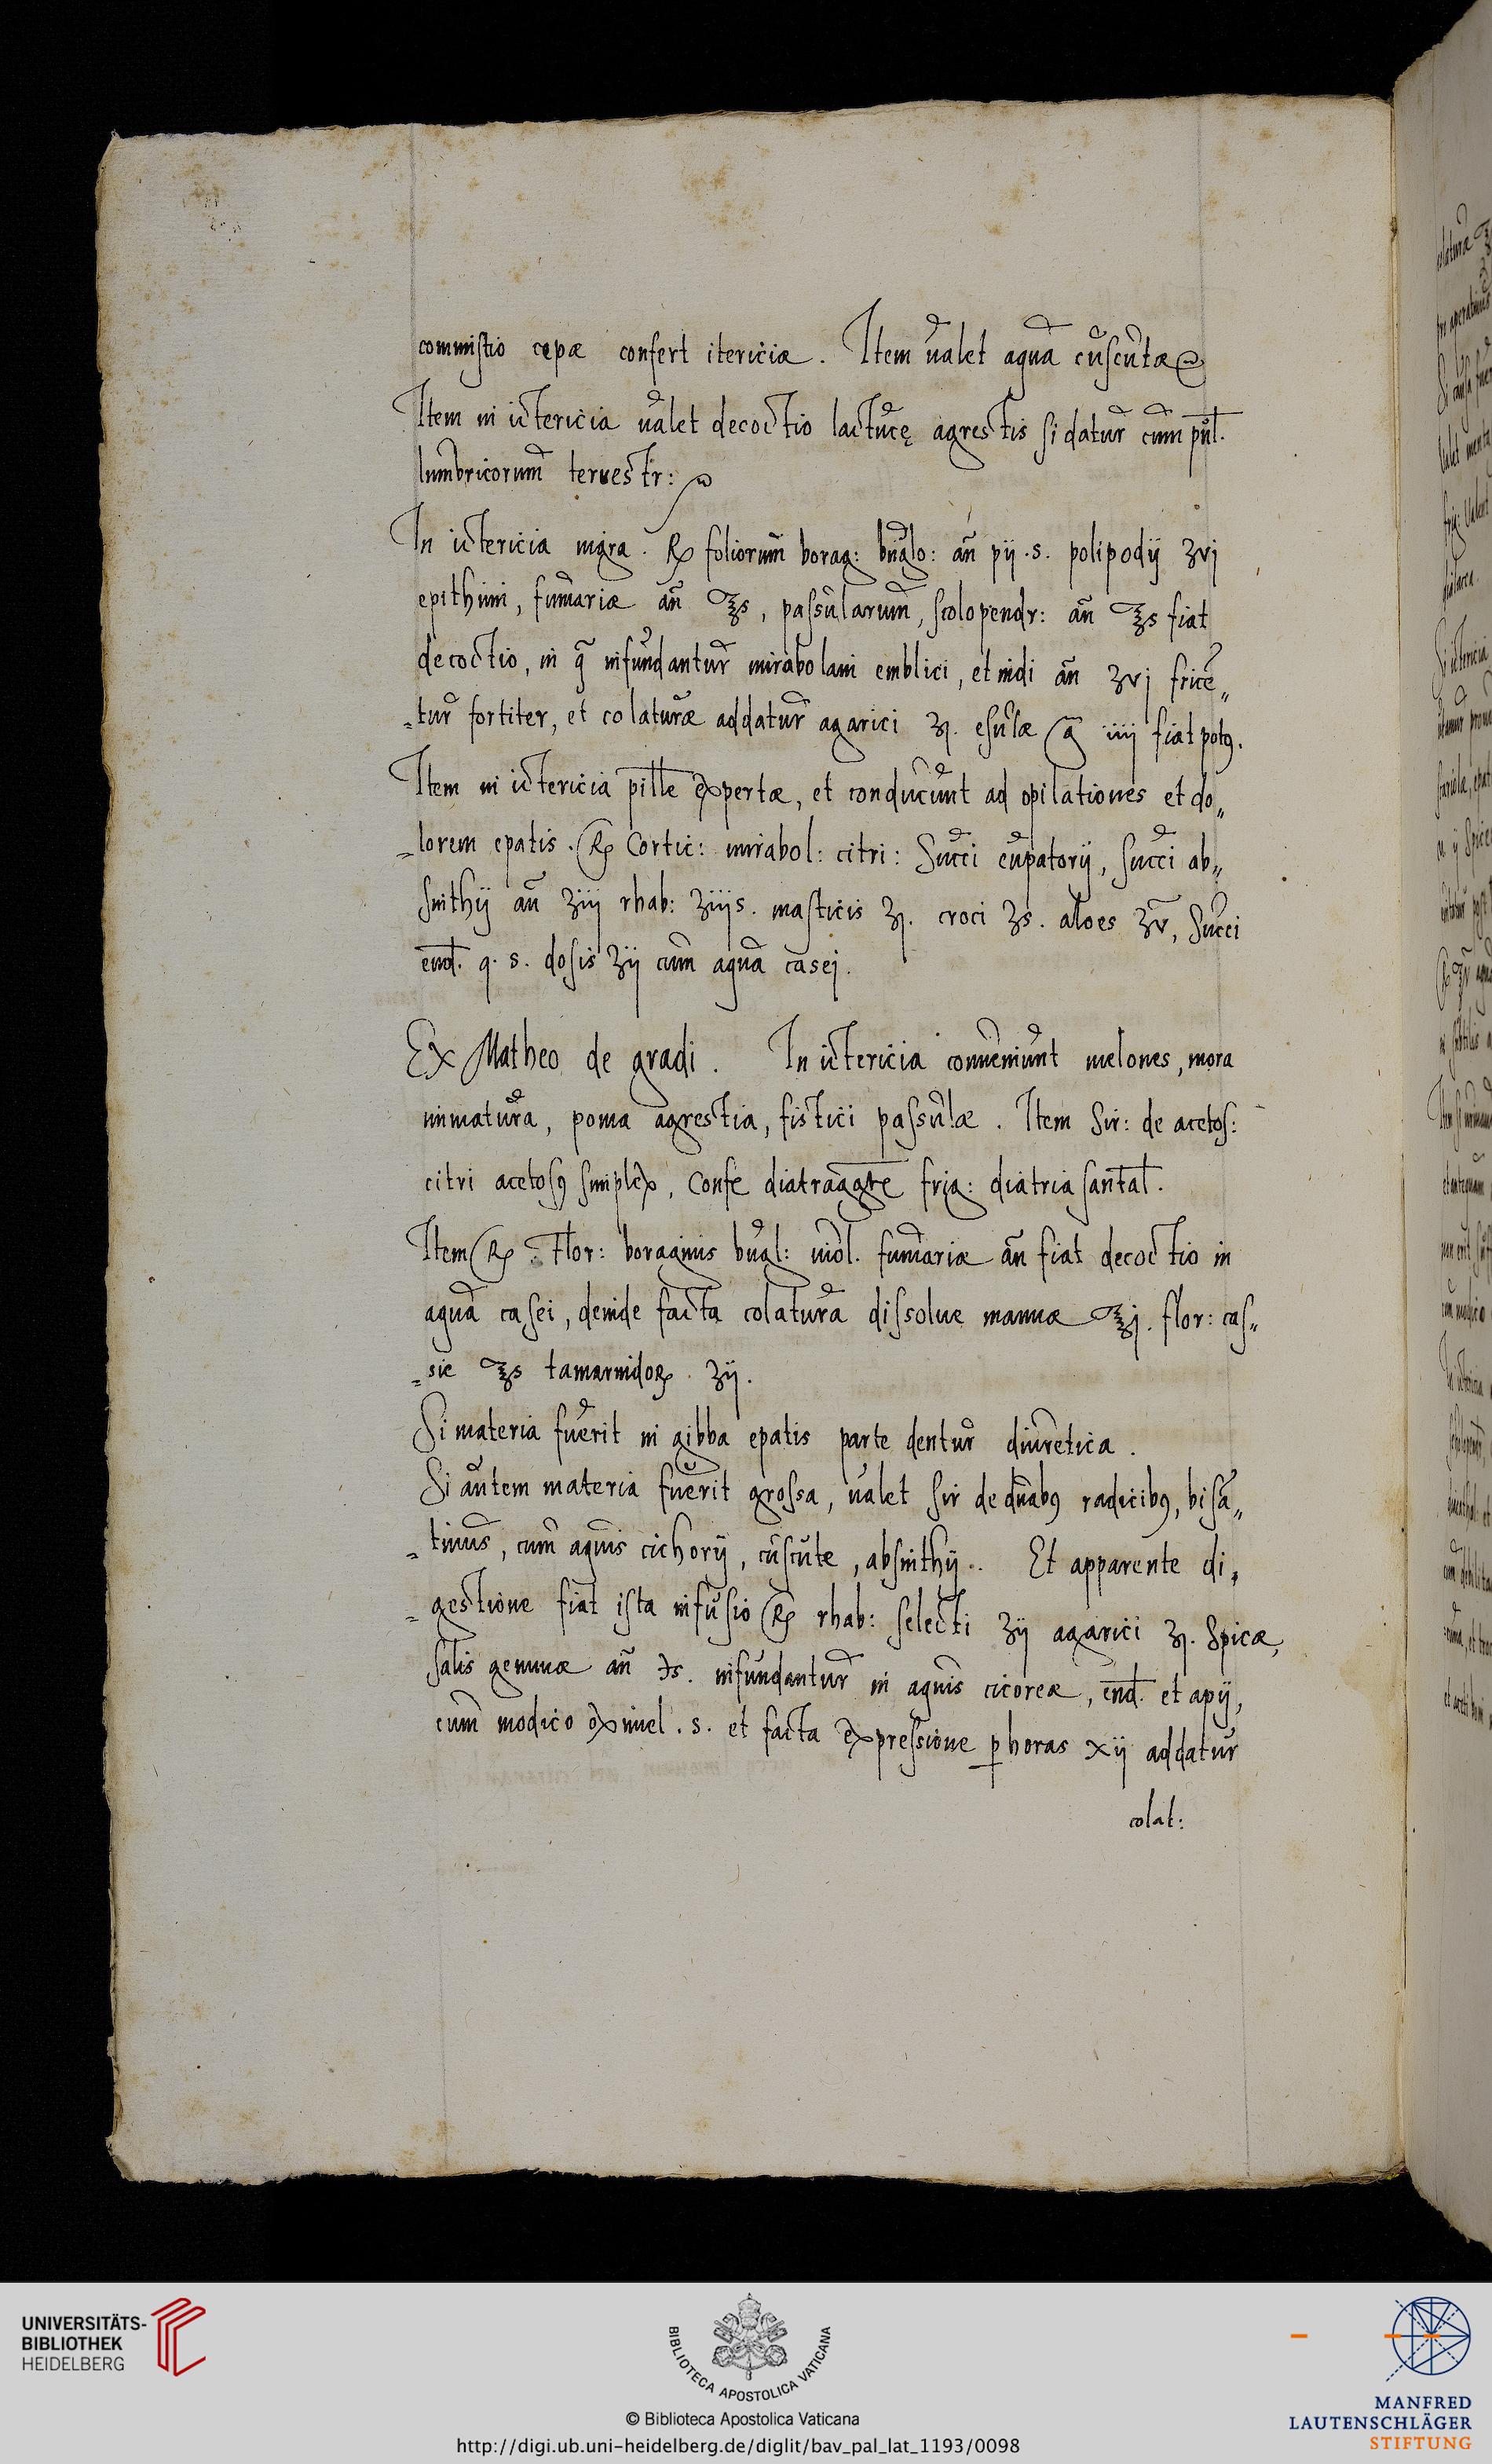 commistio cepæ confert itericiæ. Item ualet aqua cuscutæ
Item in ictericia ualet decoctio lactucę agrestis si datur cum pul.
lumbricorum terrestr:
In ictericia nigra. ℞ foliorum borag: buglo: añ pij .s. polipodij ʒvj
epithimi, fumariæ añ ℥s, passularum, scolopendr: añ ℥s fiat
decoctio, in q̃ infundantur mirabolani emblici, et indi añ ʒvj fricẽ„
„tur fortiter, et colaturæ addatur agarici ʒj. esulæ g̃ iiij fiat potꝯ.
Item in ictericia pille expertæ, et conducunt ad opilationes et do„
„lorem epatis. ℞ Cortic: mirabol: citri: Succi eupatorij, succi ab„
sinthij añ ʒiij rhab: ʒiijs. masticis ʒj. croci ʒs. aloes ʒv, Succi
end. q. s. dosis ʒij cum aqua casej.
Ex Matheo de gradi. In ictericia conueniunt melones, mora
inmatura, poma agrestia, fistici passulæ. Item Sir: de acetos:
citri acetosꝯ simplex, Confe diatraagte frig: diatria santal.
Item ℞ Flor: boraginis bugl: uiol. fumariæ añ fiat decoctio in
aqua casei, deinde facta colatura dissolue mannæ ℥j. flor: cas„
„sie ℥s tamarindoꝝ. ʒij.
Si materia fuerit in gibba epatis parte dentur diuretica.
Si autem materia fuerit grossa, ualet sir de duabꝯ radicibꝯ, bisã„
„tinus, cum aquis cichorij, cuscute, absinthij.. Et apparente di„
„gestione fiat ista infusio ℞ rhab: selecti ʒij agarici ʒj. Spicæ,
salis gemmæ añ ℈s. infundantur in aquis cicoreæ, end. et apij,
cum modico oximel .s. et facta expressione ꝑ horas xij addatur
colat:
UNIVERSITÄTS-
BIBLIOTHEK
HEIDELBERG
BIBLIOTECA APOSTOLICA VATICANA
© Biblioteca Apostolica Vaticana
http://digi.ub.uni-heidelberg.de/diglit/bav_pal_lat_1193/0098
MANFRED
LAUTENSCHLÄGER
STIFTUNG